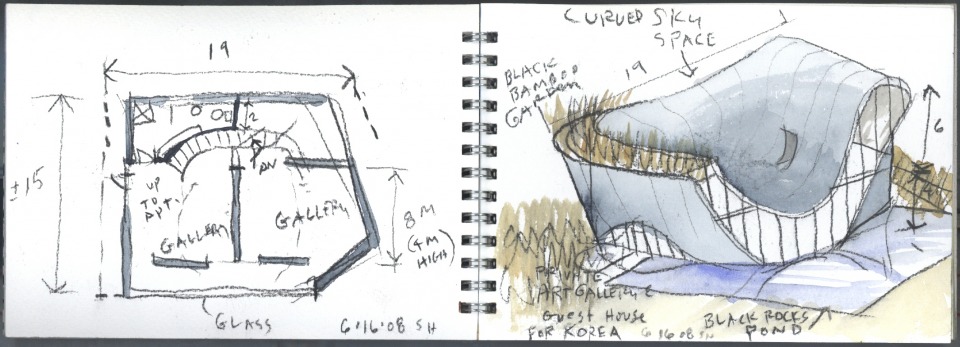 19
±15
2
UP
TO
APT.
DN
GALLERY
GALLERY
8 M
(4M
HIGH)
GLASS
6·16·08 SH
CURVED SKY
SPACE
19
BLACK
BAMBOO
GARDEN
6
4
PRIVATE
ART GALLERY &
GUEST HOUSE
FOR KOREA
6·16·08 SH
BLACK ROCKS
POND